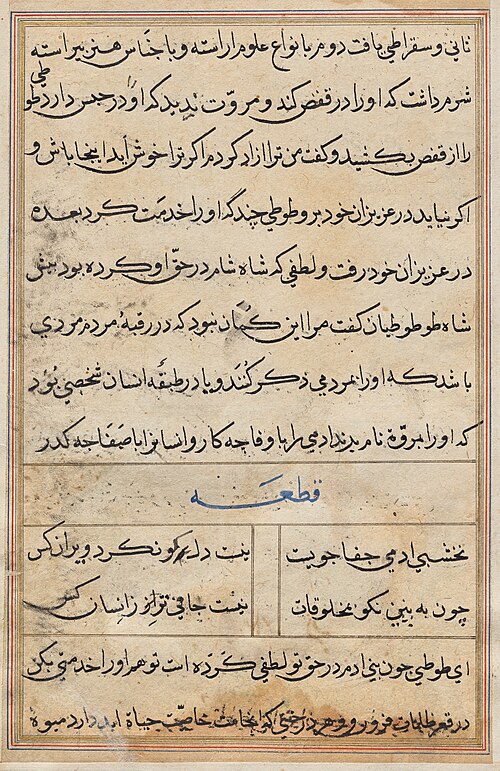 ثانی و سقراطی یافت دوم بانواع علوم آراسته و باجناس هنر پیراسته
شرم داشت که او را در قفص کند و مروت ندید که او در حبس دارد طوطی
را از قفص بکشید و کفت من ترا ازاد کردم اکر ترا خوش آید اینجا باش و
اکر نیاید در عزیزان خود برو طوطی چند گه او را خدمت کرد بعده
در عزیزان خود رفت و لطفی که شاه شام در حق او کرده بود پیش
شاه طوطیان کفت مرا این کمان نبود که در رقبهٔ مردم مردی
باشد که او را مردمی ذکر کنند و یا در طبقه انسان شخصی بود
که او را مروة نام برند ادمی را با وفا چه کار و انسان را با صفا چه کدر
قطعه
نخشبی ادمی جفا جویست
نیست دل کو نکرد ویران کس
چون به بینی نکو بمخلوقات
نیست جافی تر از انسان کس
ای طوطی چون بنی ادم در حق تو لطفی کرده است تو هم او را خدمتی بکن
در قعر ظلمات فرو رو و هر درختی که انجاست خاصیت حیاة ابد دارد میوهٔ